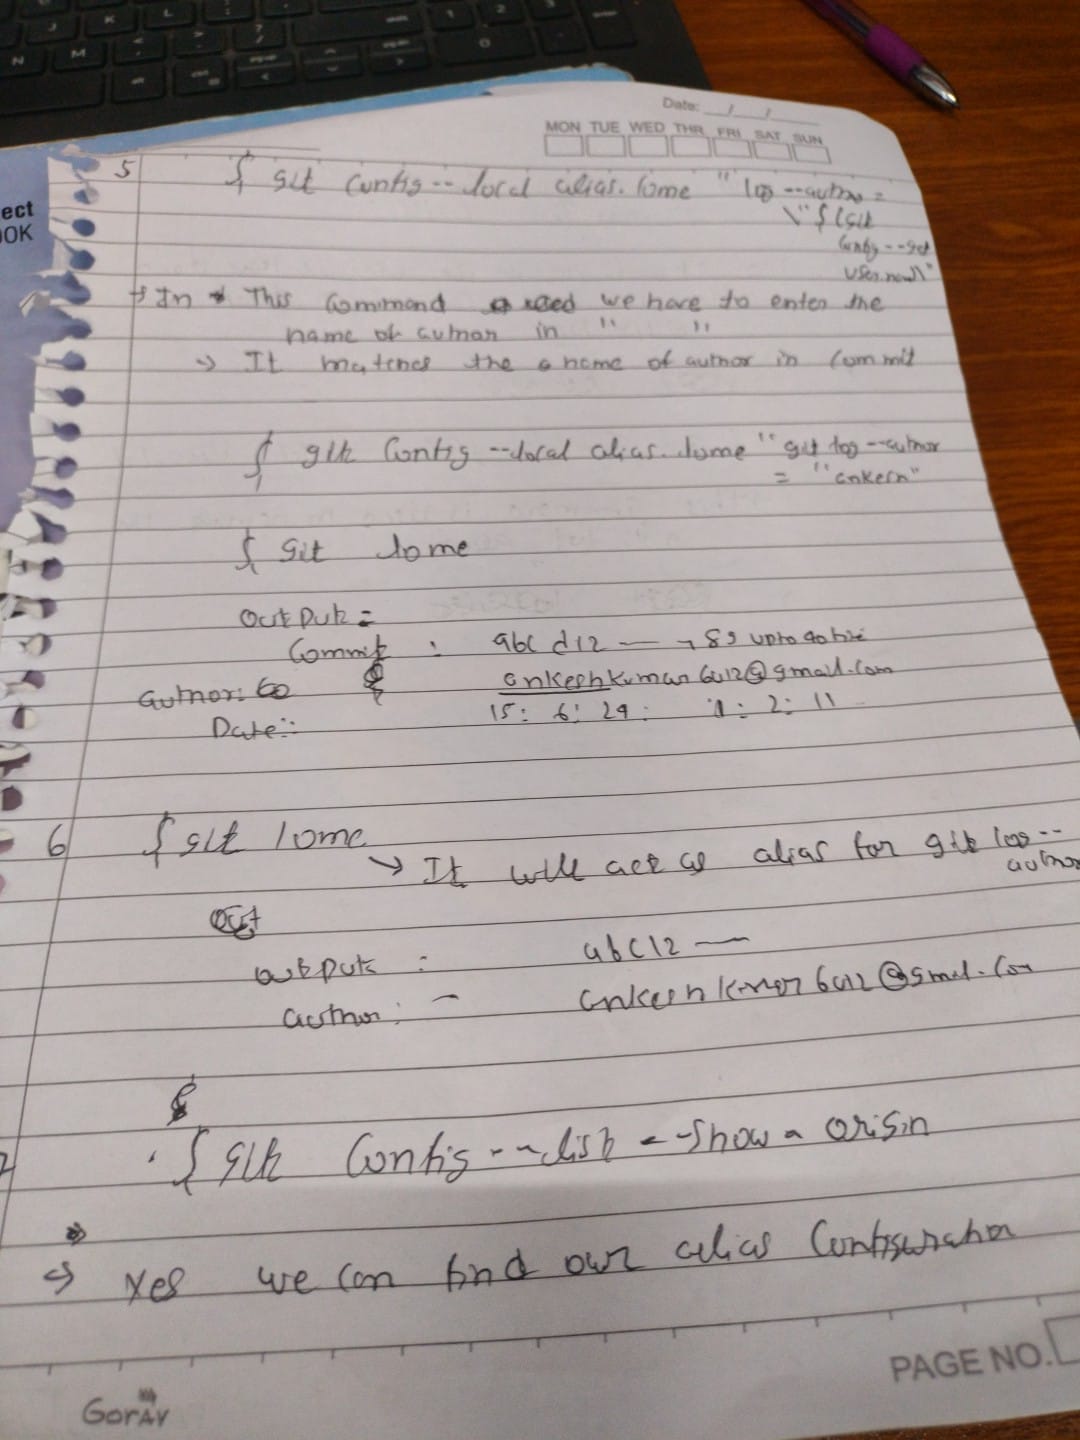 Date: __/__/__
MON TUE WED THR FRI SAT SUN
ect
OOK
5
$ git config --local alias.lome "log --author =
\"$(git
config --get
user.name)\"
→ In This Command need we have to enter the
name of author in " "
→ It matches the name of author in Commit
$ git Config --local alias.lome "git log --author
= "ankesh"
$ git lome
Output =
Commit : abcd12 — → 89 upto
author: ankeshkumar6012@gmail.com
Date:: 15: 6: 29: 1: 2: 11
6 $ git lome
→ It will act as alias for git log --
author
output : abc12 —
author: - ankeshkumar6012@gmail.com
7 $ git Config --list --show-origin
→ Yes we can find our alias Configuration
PAGE NO.
Goray